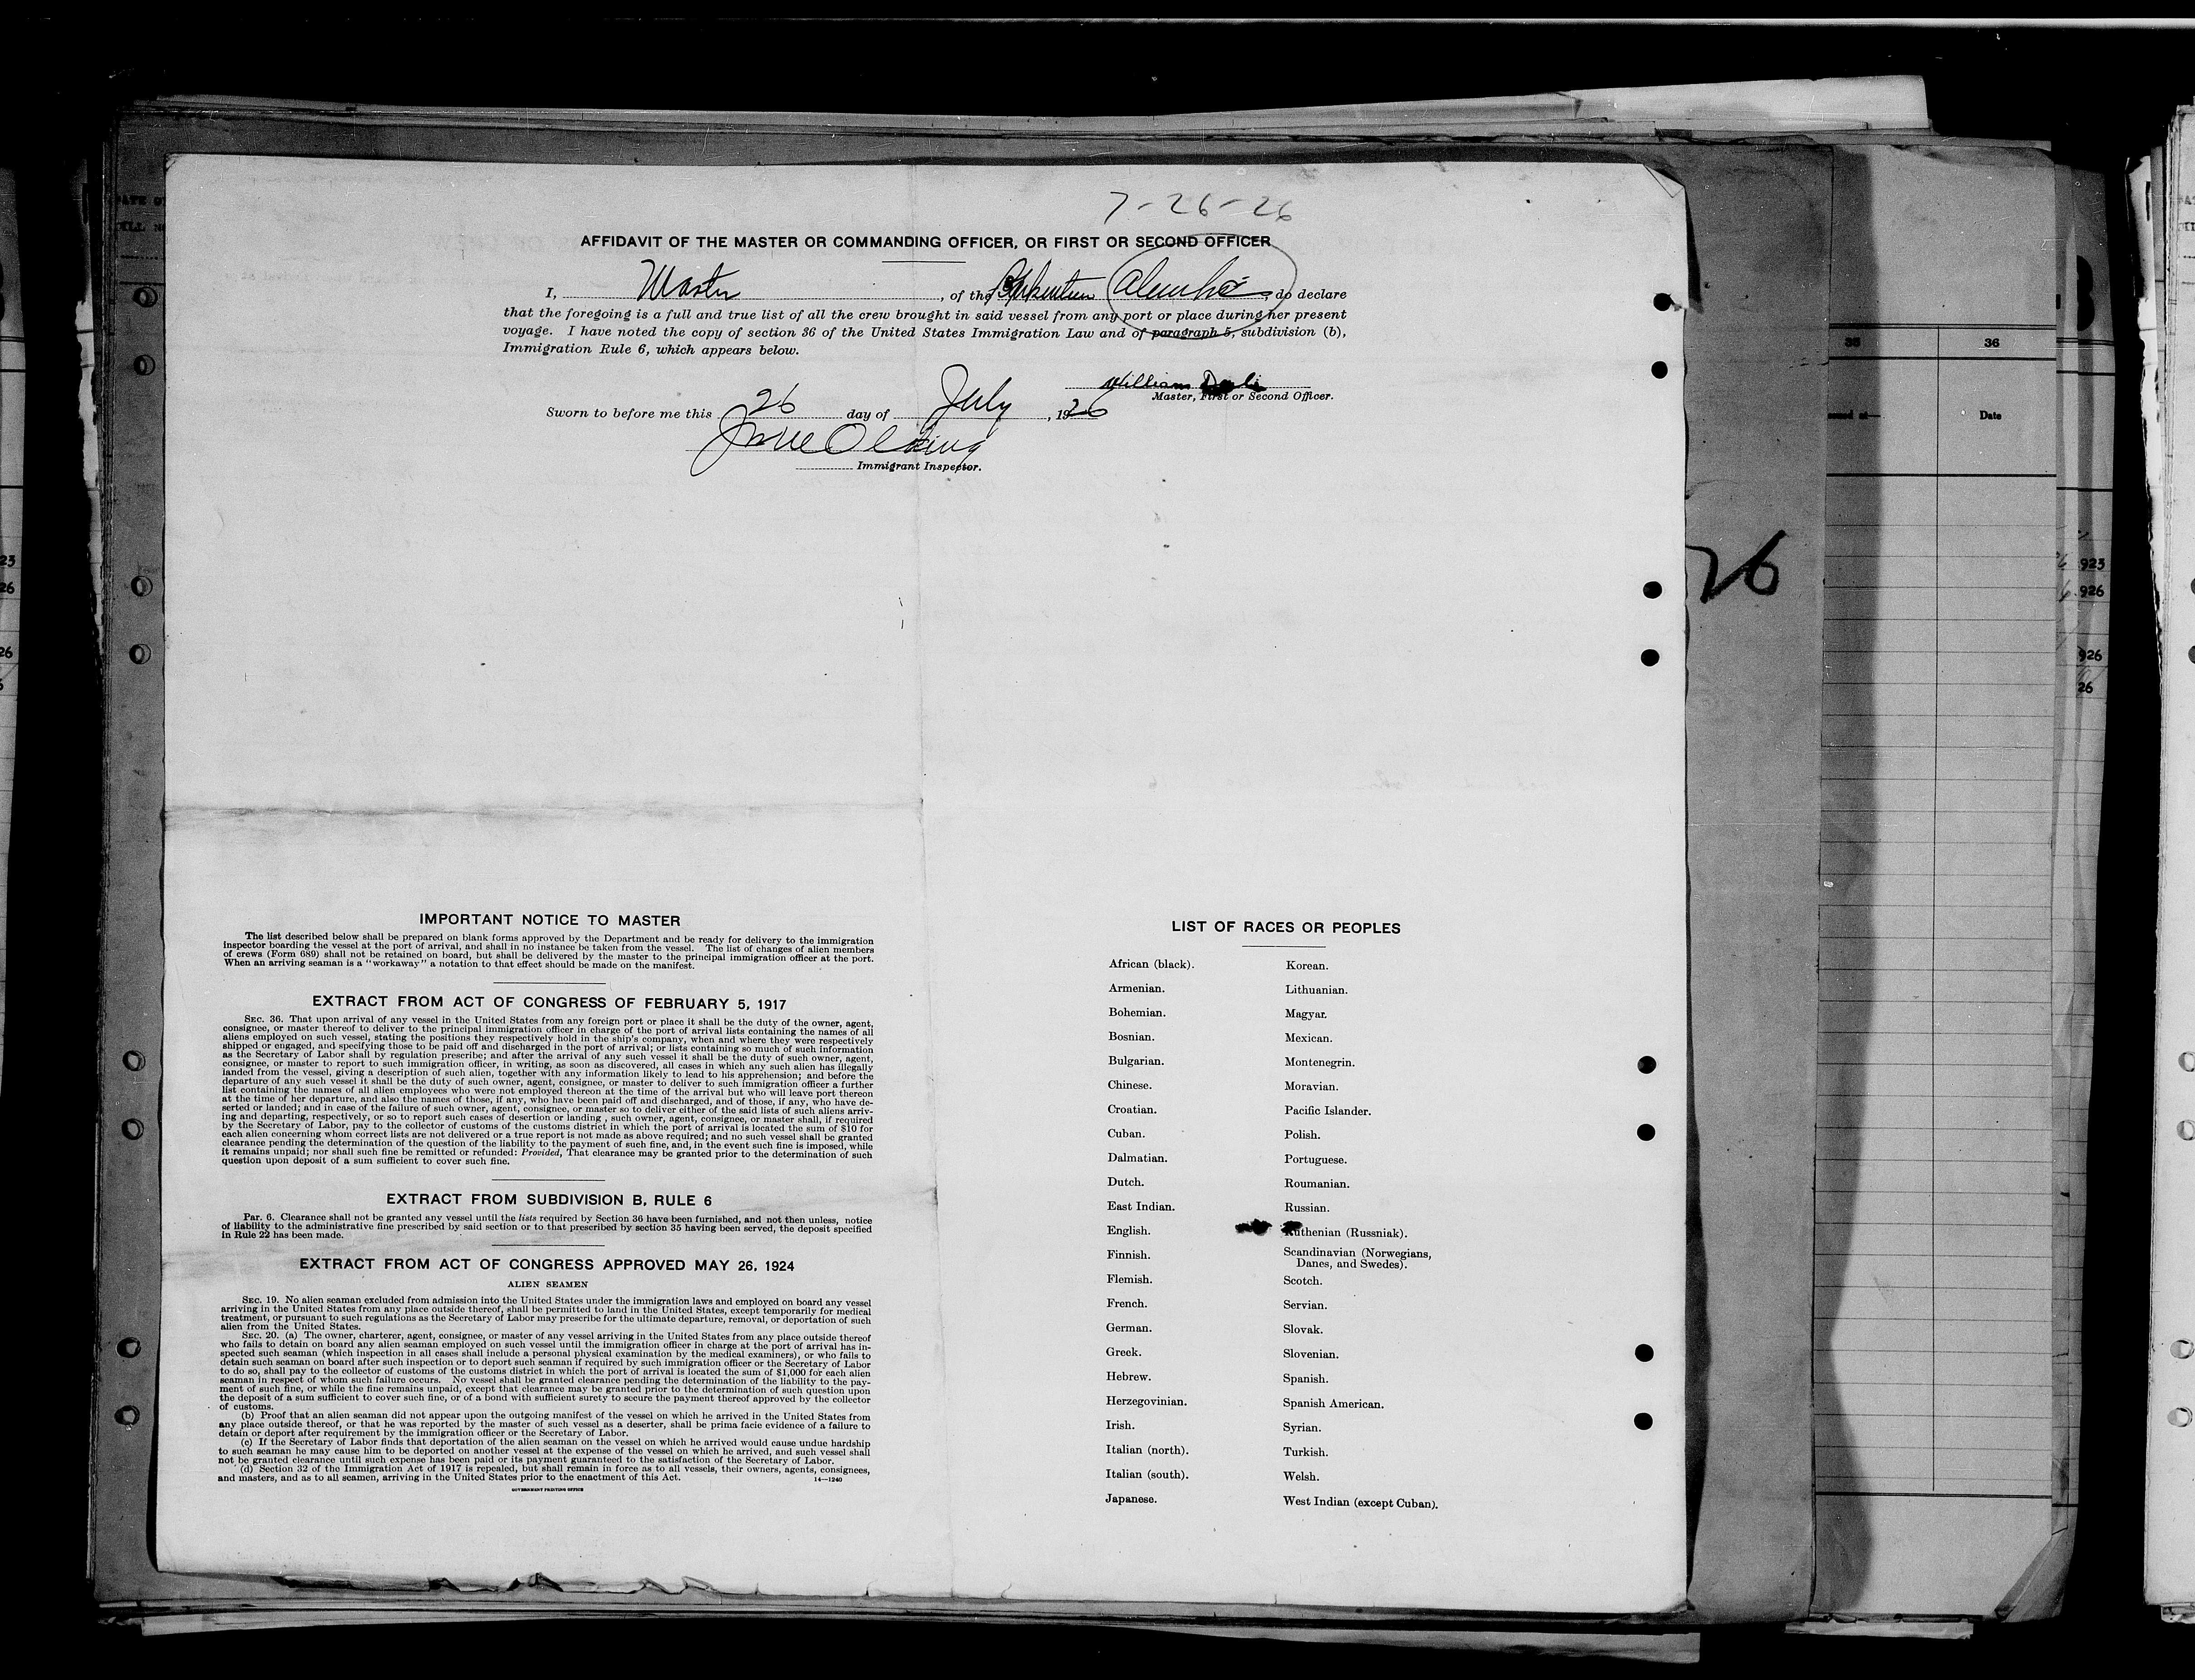 7-26-26
AFFIDAVIT OF THE MASTER OR COMMANDING OFFICER, OR FIRST OR SECOND OFFICER
I, Master, of the do declare
that the foregoing is a full and true list of all the crew brought in said vessel from any port or place during her present
voyage. I have noted the copy of section 36 of the United States Immigration Law and of paragraph 5, subdivision (b),
Immigration Rule 6, which appears below.
William
Master, First or Second Officer.
Sworn to before me this 26 day of July, 1926
Immigrant Inspector.
IMPORTANT NOTICE TO MASTER
The list described below shall be prepared on blank forms approved by the Department and be ready for delivery to the immigration
inspector boarding the vessel at the port of arrival, and shall in no instance be taken from the vessel. The list of changes of alien members
of crews (Form 689) shall not be retained on board, but shall be delivered by the master to the principal immigration officer at the port.
When an arriving seaman is a "workaway" a notation to that effect should be made on the manifest.
EXTRACT FROM ACT OF CONGRESS OF FEBRUARY 5, 1917
SEC. 36. That upon arrival of any vessel in the United States from any foreign port or place it shall be the duty of the owner, agent,
consignee, or master thereof to deliver to the principal immigration officer in charge of the port of arrival lists containing the names of all
aliens employed on such vessel, stating the positions they respectively hold in the ship's company, when and where they were respectively
shipped or engaged, and specifying those to be paid off and discharged in the port of arrival; or lists containing so much of such information
as the Secretary of Labor shall by regulation prescribe; and after the arrival of any such vessel it shall be the duty of such owner, agent,
consignee, or master to report to such immigration officer, in writing, as soon as discovered, all cases in which any such alien has illegally
landed from the vessel, giving a description of such alien, together with any information likely to lead to his apprehension; and before the
departure of any such vessel it shall be the duty of such owner, agent, consignee, or master to deliver to such immigration officer a further
list containing the names of all alien employees who were not employed thereon at the time of the arrival but who will leave port thereon
at the time of her departure, and also the names of those, if any, who have been paid off and discharged, and of those, if any, who have de-
serted or landed; and in case of the failure of such owner, agent, consignee, or master so to deliver either of the said lists of such aliens arriv-
ing and departing, respectively, or so to report such cases of desertion or landing, such owner, agent, consignee, or master shall, if required
by the Secretary of Labor, pay to the collector of customs of the customs district in which the port of arrival is located the sum of $10 for
each alien concerning whom correct lists are not delivered or a true report is not made as above required; and no such vessel shall be granted
clearance pending the determination of the question of the liability to the payment of such fine, and, in the event such fine is imposed, while
it remains unpaid; nor shall such fine be remitted or refunded: Provided, That clearance may be granted prior to the determination of such
question upon deposit of a sum sufficient to cover such fine.
EXTRACT FROM SUBDIVISION B, RULE 6
Par. 6. Clearance shall not be granted any vessel until the lists required by Section 36 have been furnished, and not then unless, notice
of liability to the administrative fine prescribed by said section or to that prescribed by section 35 having been served, the deposit specified
in Rule 22 has been made.
EXTRACT FROM ACT OF CONGRESS APPROVED MAY 26, 1924
ALIEN SEAMEN
SEC. 19. No alien seaman excluded from admission into the United States under the immigration laws and employed on board any vessel
arriving in the United States from any place outside thereof, shall be permitted to land in the United States, except temporarily for medical
treatment, or pursuant to such regulations as the Secretary of Labor may prescribe for the ultimate departure, removal, or deportation of such
alien from the United States.
SEC. 20. (a) The owner, charterer, agent, consignee, or master of any vessel arriving in the United States from any place outside thereof
who fails to detain on board any alien seaman employed on such vessel until the immigration officer in charge at the port of arrival has in-
spected such seaman (which inspection in all cases shall include a personal physical examination by the medical examiners), or who fails to
detain such seaman on board after such inspection or to deport such seaman if required by such immigration officer or the Secretary of Labor
to do so, shall pay to the collector of customs of the customs district in which the port of arrival is located the sum of $1,000 for each alien
seaman in respect of whom such failure occurs. No vessel shall be granted clearance pending the determination of the liability to the pay-
ment of such fine, or while the fine remains unpaid, except that clearance may be granted prior to the determination of such question upon
the deposit of a sum sufficient to cover such fine, or of a bond with sufficient surety to secure the payment thereof approved by the collector
of customs.
(b) Proof that an alien seaman did not appear upon the outgoing manifest of the vessel on which he arrived in the United States from
any place outside thereof, or that he was reported by the master of such vessel as a deserter, shall be prima facie evidence of a failure to
detain or deport after requirement by the immigration officer or the Secretary of Labor.
(c) If the Secretary of Labor finds that deportation of the alien seaman on the vessel on which he arrived would cause undue hardship
to such seaman he may cause him to be deported on another vessel at the expense of the vessel on which he arrived, and such vessel shall
not be granted clearance until such expense has been paid or its payment guaranteed to the satisfaction of the Secretary of Labor.
(d) Section 32 of the Immigration Act of 1917 is repealed, but shall remain in force as to all vessels, their owners, agents, consignees,
and masters, and as to all seamen, arriving in the United States prior to the enactment of this Act. 14—1240
GOVERNMENT PRINTING OFFICE
LIST OF RACES OR PEOPLES
African (black). Korean.
Armenian. Lithuanian.
Bohemian. Magyar.
Bosnian. Mexican.
Bulgarian. Montenegrin.
Chinese. Moravian.
Croatian. Pacific Islander.
Cuban. Polish.
Dalmatian. Portuguese.
Dutch. Roumanian.
East Indian. Russian.
English. Ruthenian (Russniak).
Finnish. Scandinavian (Norwegians,
Danes, and Swedes).
Flemish. Scotch.
French. Servian.
German. Slovak.
Greek. Slovenian.
Hebrew. Spanish.
Herzegovinian. Spanish American.
Irish. Syrian.
Italian (north). Turkish.
Italian (south). Welsh.
Japanese. West Indian (except Cuban).
26
35 36
Date
923
926
926
26
23
26
26